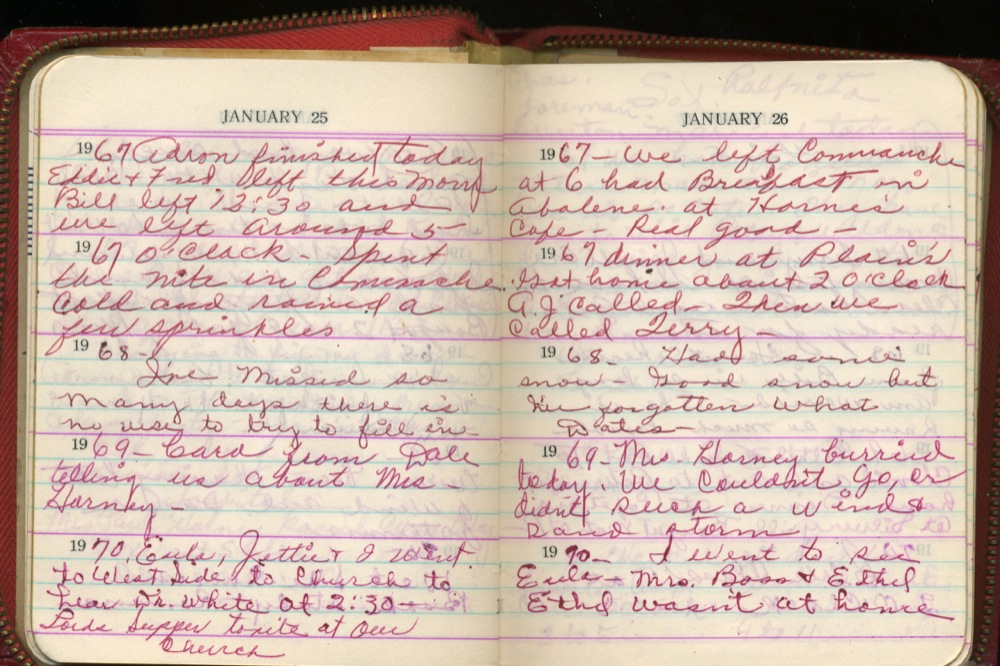 JANUARY 25
1967 Aaron finished today
Eddie & Fred left this morng
Bill left 12:30 and
we left around 5
1967 O'clock - Spent
the nite in Comanche
Cold and rained a
few sprinkles
1968 -
I've missed so
many days there is
no use to try to fill in -
1969 - Card from Dale
telling us about Mrs -
Horney -
1970, Eula, Jettie & I went
to West Side to Church to
hear Dr. White at 2:30 -
Lords Supper tonite at our
Church
JANUARY 26
1967 - We left Commanche
at 6 had Breakfast in
Abalene at Horne's
Cafe - Real good -
1967 dinner at Plains
Got home about 2 O'Clock
A.J. called - Then we
Called Terry -
1968 - Had some
snow - Good snow but
I've forgotten what
Dates -
1969 - Mrs. Horney burried
today We Couldn't Go, or
didn't Such a Wind &
Sand storm
1970 - I went to see
Eula - Mrs. Bass & Ethel
Ethel wasn't at home